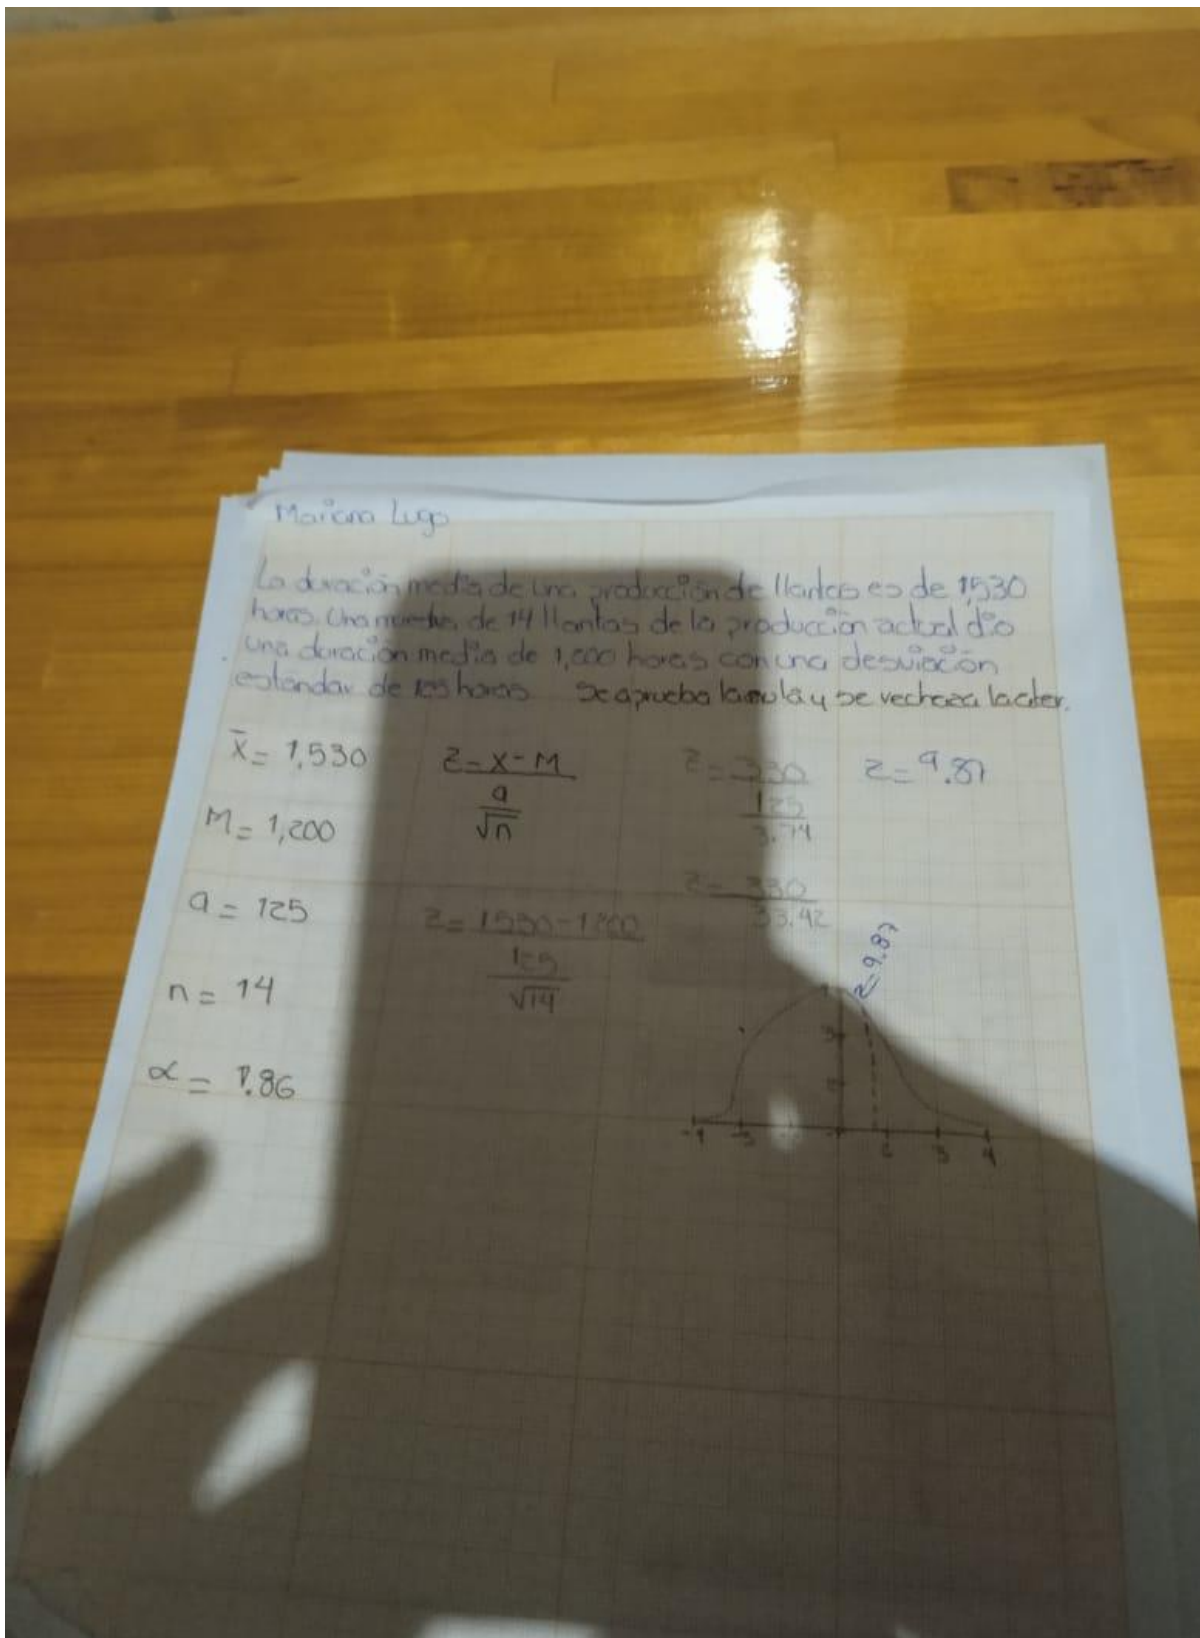 Mariana Lugo
La duración media de una producción de llantas es de 1530
horas. Una muestra de 14 llantas de la producción actual dio
una duración media de 1,200 horas con una desviación
estándar de 125 horas. Se aprueba la nula y se rechaza la alter.
x̄ = 1,530
z = x - M
a
√n
z = 330
125
3.74
z = 9.87
M = 1,200
z = 330
33.42
a = 125
z = 1530 - 1200
125
√14
n = 14
z=9.87
α = 1.86
-4 -3 2 3 4